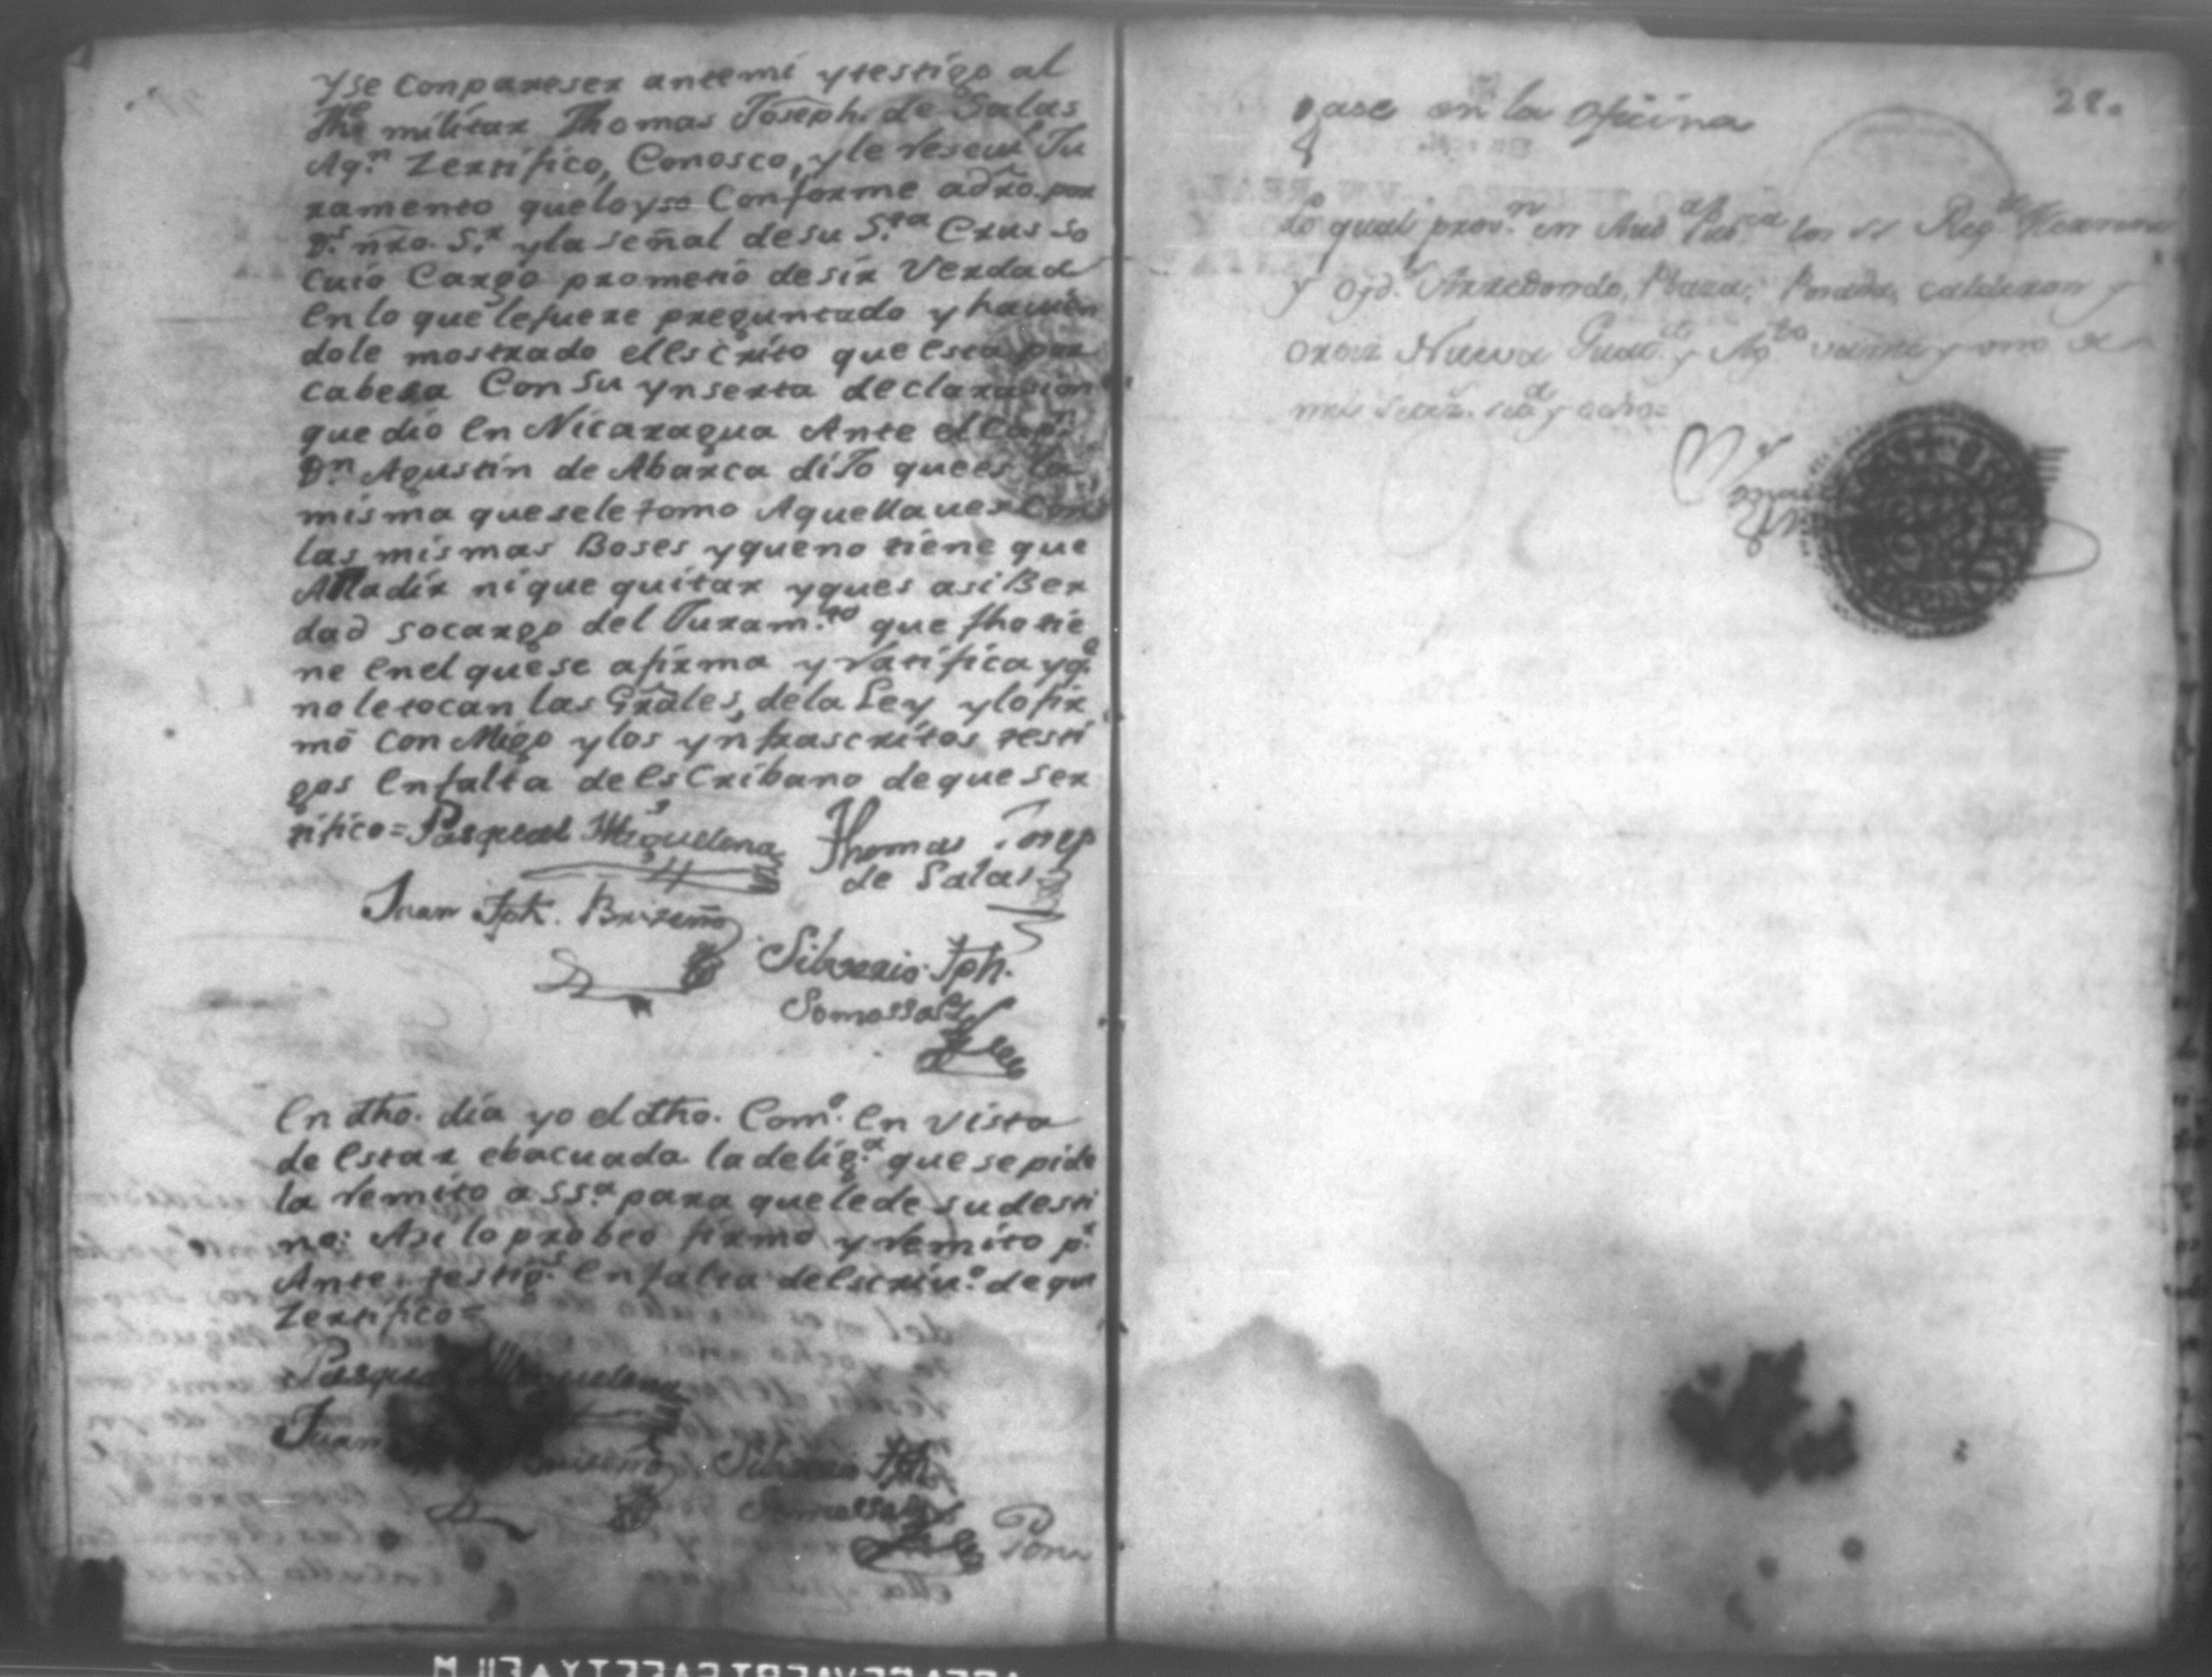 yse conpareser antemi ytestigo al
The militar Thomas Joseph. de Salas
Aqn Zertifico, Conosco, yle reseui Ju
ramento queloyso Conforme adro. por
Ds. nro. Sr. yla señal desu Sta Crus so
Cuio Cargo prometio desir Verdad
en lo que lefuere preguntado y havien
dole mostrado elescrito que esta por
cabesa Con Su ynserta declarasion
que dio en Nicaragua Ante el Capn.
Dn Agustin de Abarca diJo quees la
misma queseletomo Aquella ues Con
las mismas Boses yqueno tiene que
Añadir nique quitar yques asi Ber
dad socargo del Juramto. que fho tie
ne enel quese afirma y ratifica yqe
noletocan las Grales, dela Ley ylofir
mó Con Migo ylos ynfrascritos testi
gos enfalta de esCribano deque ser
tifico= Pasqual Miguelena Thomas Josep
de Salas
Juan Jph. Brizeño
Silverio Jph.
Somossa
En dho. dia yo el dho. Como. en vista
de estar ebacuada ladeliga. que sepide
la remito a SSa. para quelede sudesti
no: Asi lo probeo firmo y remito pr.
Ante. testigs. enfalta delescriuo. de que
Zertifico=
Pasqual Miguelena
Juan Brizeño Silverio Jph.
Somossa
28.
gase en la oficina
lo qual prov.n en Aud.a Pub.ca los ss Reg.te
y Oyd.s Arredondo, Plaza, Posada, Calderon y
Ortiz Nueva Guat.a y Ag.to veinte y uno de
mil setez. och.a y ocho=